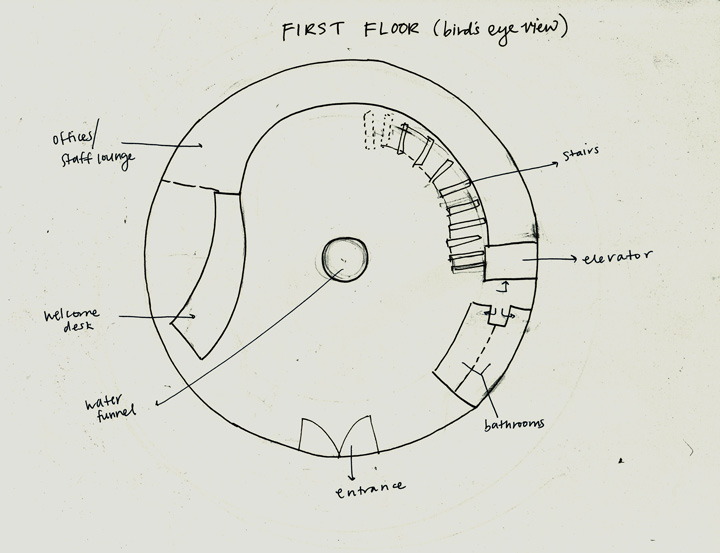 FIRST FLOOR (bird's eye view)
offices/
staff lounge
stairs
elevator
welcome
desk
water
funnel
bathrooms
entrance